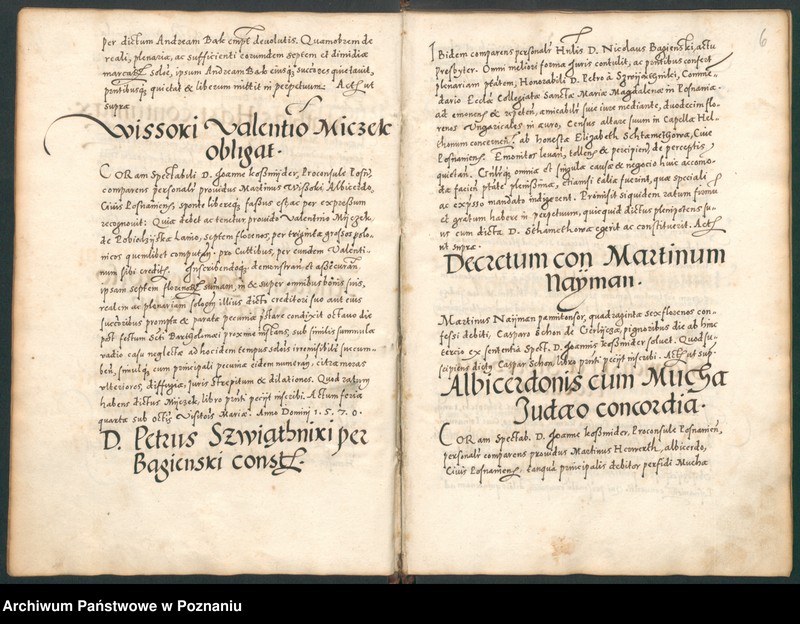 per dictum Andream Bak empt devolutis. Quamobrem de
reali, plenaria, ac sufficienti eorundem septem et dimidiae
marcar solne, ipsum Andream Bak eiusq successores quietavit,
omnibusq quietat & liberum mittit in perpetuum. Act ut
supra
Wissoki Valentio Miczek
obligat.
CORam Spectabili D. Joanne Kosmider, Proconsule Posn,
comparens personalr providus Martinus Wissoki Albicerdo,
Civis Posnaniens, sponte libereq fassus est ac per expressum
recognovit: Quia debet ac tenetur provido Valentino Miczek,
septem florenos, per triginta grossos polo-
nicos quemlibet computan pro Cuttibus, per eundem Valenti-
num sibi credit. Inscribendoq demonstran et assecuran
ipsam septem floren sumam, in & super omnibus bonis suis,
realem ac plenariam sologm illius dicto creditori suo aut eius
succroribus prompta & parata pecunia pstare condixit octavo die
post festum Scti Bartholomaei proxime instans, sub similis summulae
vadio casu neglecta ad hoc idem tempus solnis irremissibilr succum-
ben, simulq cum principali pecunia eidem numeran, citra moras
ulteriores, diffugia, Juris Strepitum & dilationes. Quod ratum
habens dictus Mijczek, libro pnti pecijt inscribi. Actum feria
quarta sub octis Visitois Mariae. Anno Domini 1570.
D. Petrus Szwiathnixi per
Bagienski constt.
6
IBidem comparens personalr Hnlis D. Nicolaus Bagienski, actu
Presbyter. Omni meliori forma Juris contulit, ac pntibus confert
plenariam ptatem, Honorabili D. Petro à Commen-
dario Ecclae Collegiatae Sanctae Mariae Magdalenae in Posnania.
ad emonen & repeten, amicabilr sive iure mediante, duodecim flo-
renos Ungaricales in auro, Census altare suum in Capella Hel-
thonum concernen, ab honesta Elizabeth Schtamethowa, Cive
Posnaniens. Emonitos levan, tollen & percipien, de perceptis
quietan. Ceteraq omnia et singula causae & negocio huic accomo-
data facien ptate plenissima, etiamsi talia fuerint, quae speciali
ac expresso mandato indigerent. Promisit siquidem ratum firmum
et gratum habere in perpetuum, quicquid dictus plenipotens su-
us cum dicta D. Sthamethowa egerit ac constituerit. Act
ut supra.
Decretum con Martinum
Naÿman.
Martinus Naijman pannitonsor, quadraginta sex florenos con-
fessi debiti, Casparo Schon de Gerlijcza, pignoribus die ab hinc
tercio ex sententia Spect. D. Joannis Kosmider solvet. Quod su-
scipiens dictus Caspar Schon, libro pnti pecijt inscribi. Act ut sup.
Albicerdonis cum Mucha
Judaeo concordia.
CORam Spectab. D. Joanne Kosmider, Proconsule Posnanien,
personalr comparens providus Martinus Hewerth, albicerdo,
Civis Posnaniens, tanqua principalis debitor perfidi Mucha
Archiwum Państwowe w Poznaniu